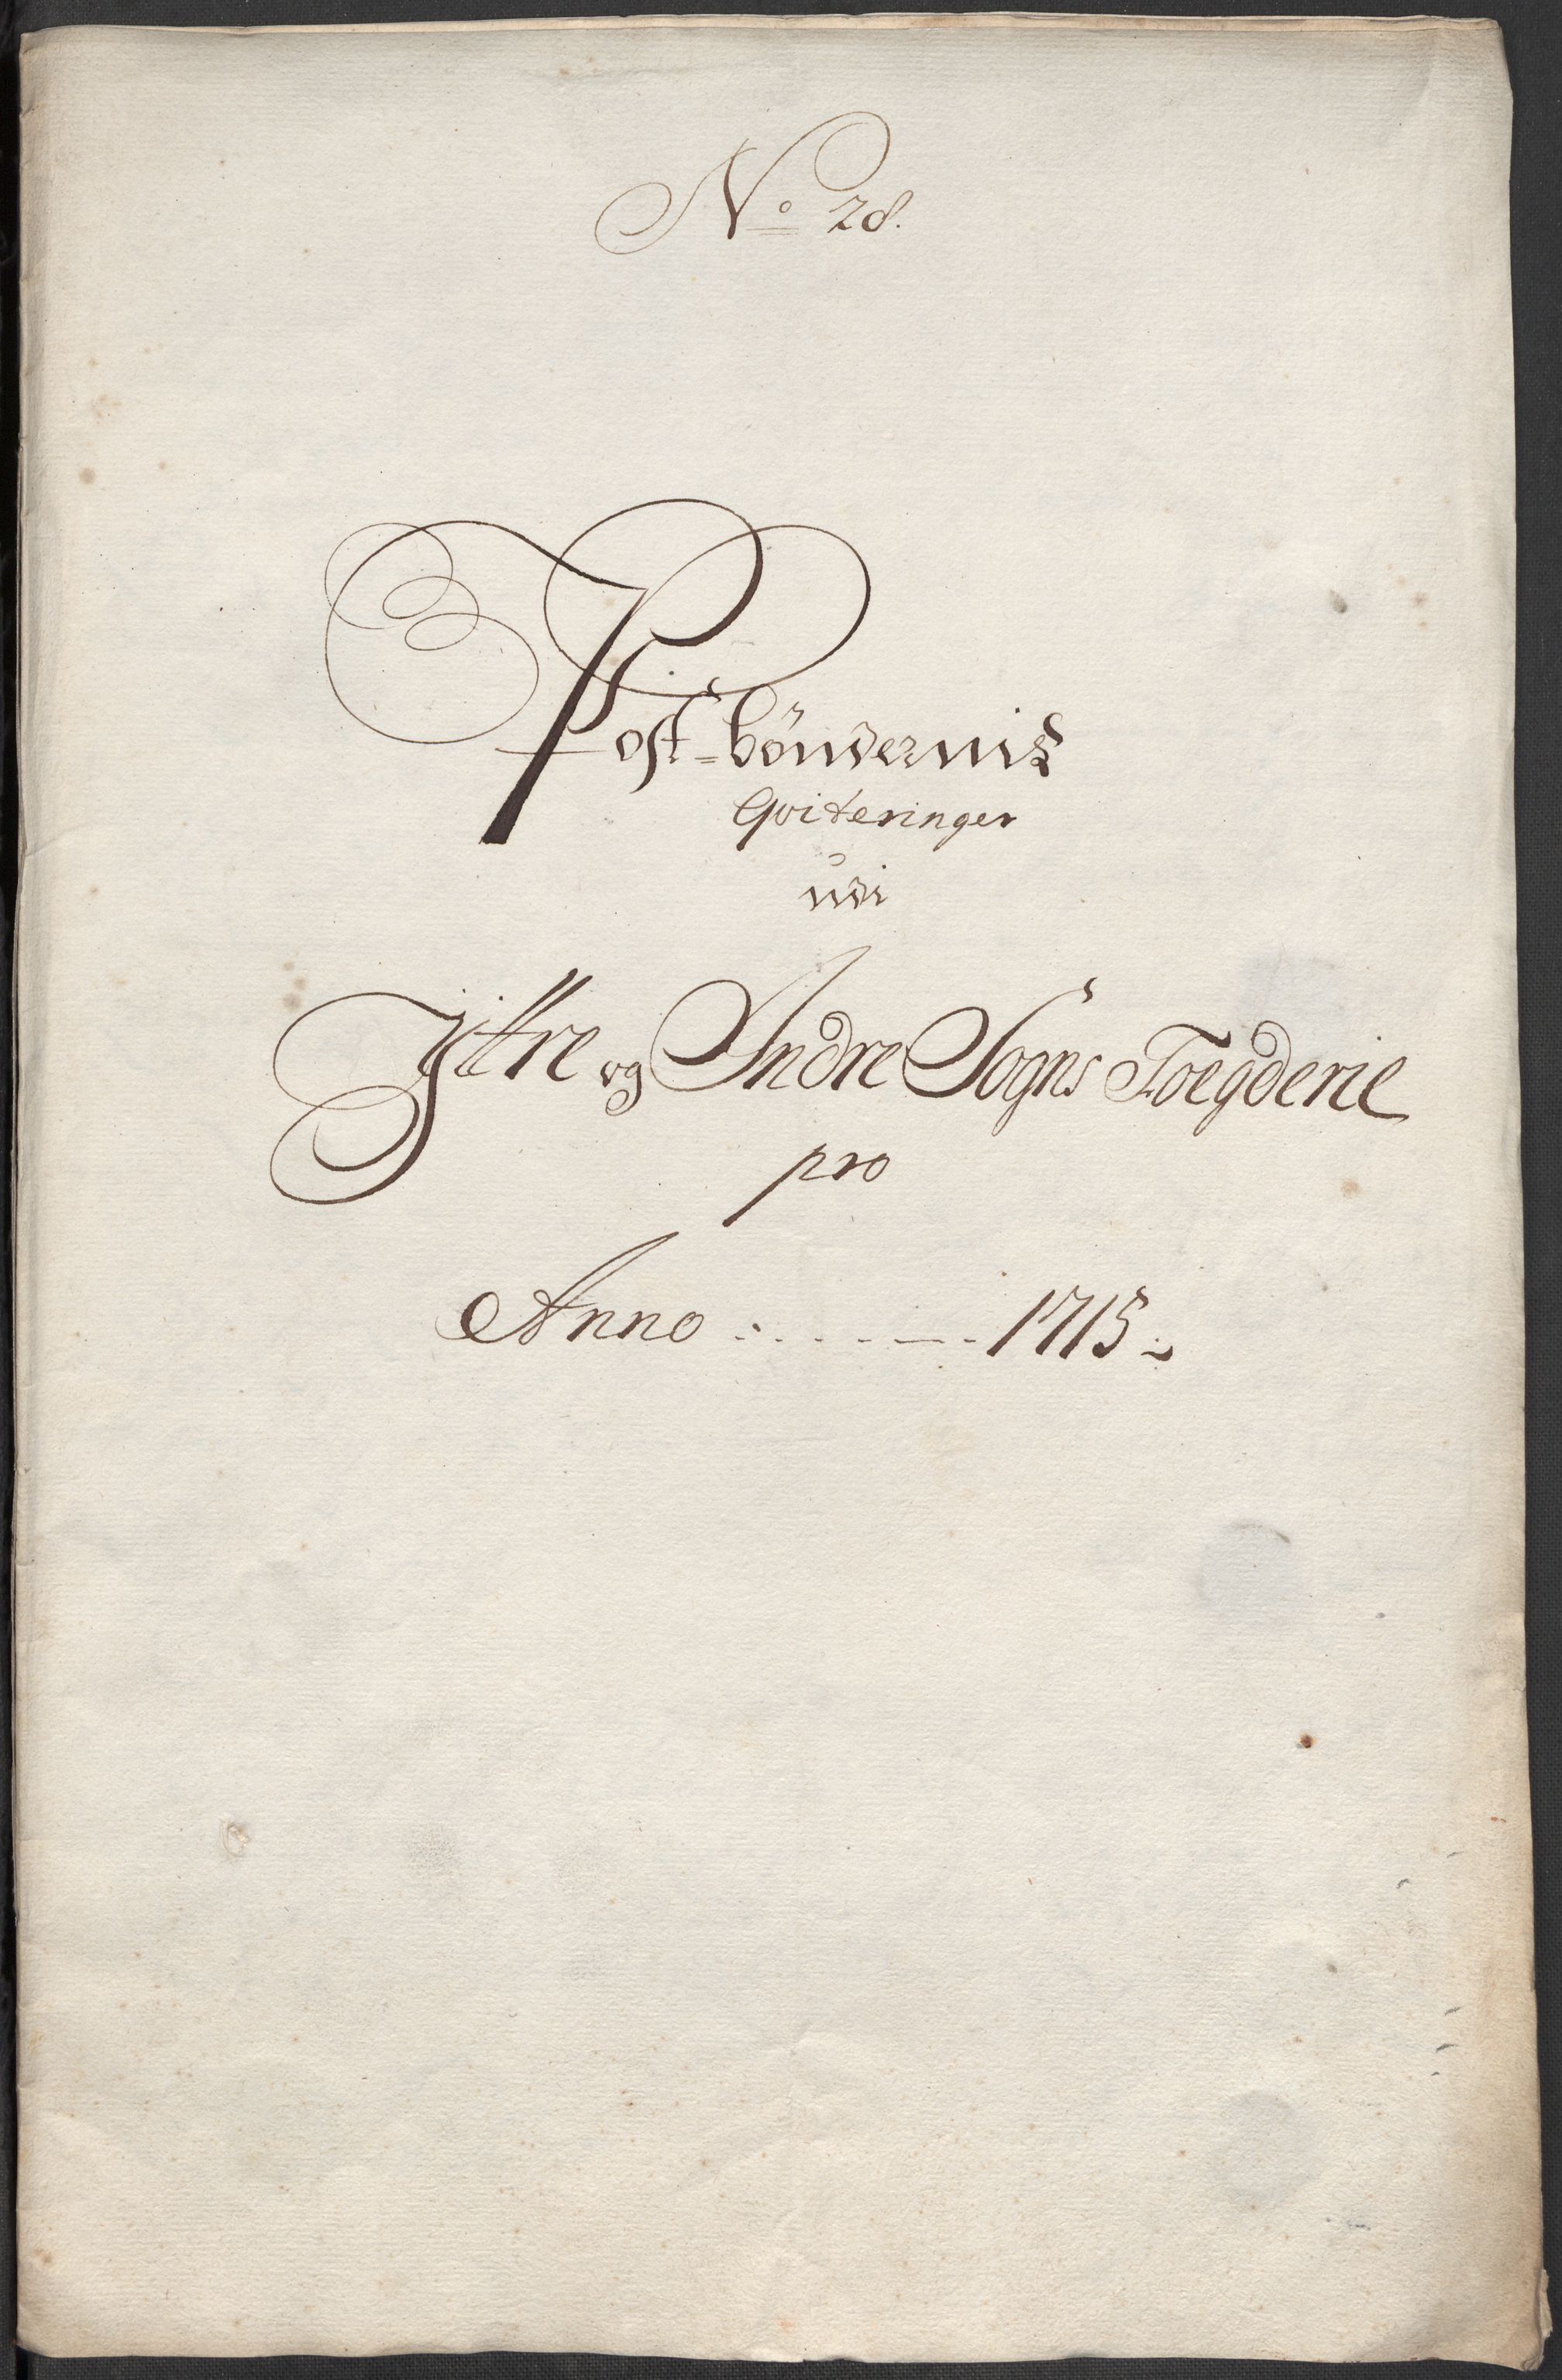 No 28.
Post=böndernis
Qviteringer
udi
Yttre og Indre Sogns Foegderie
pro
Anno ..... 1715